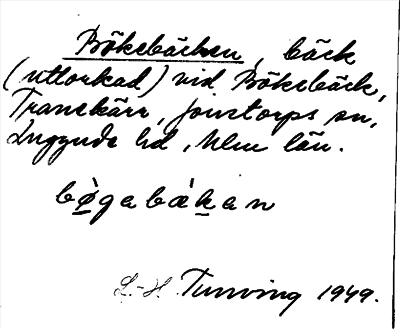 Bökebäcken, bäck
(uttorkad) vid Bökebäck,
Tranekärr, Jonstorps sn,
Luggude hd, Mlm län.
bø̀gabækan
L.-H. Tunving 1949.